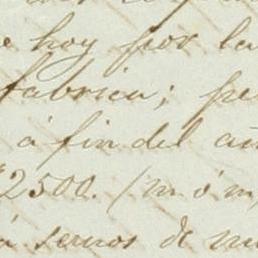 hoy por la
fabrica;
á fin del
2500. (m ó m
de